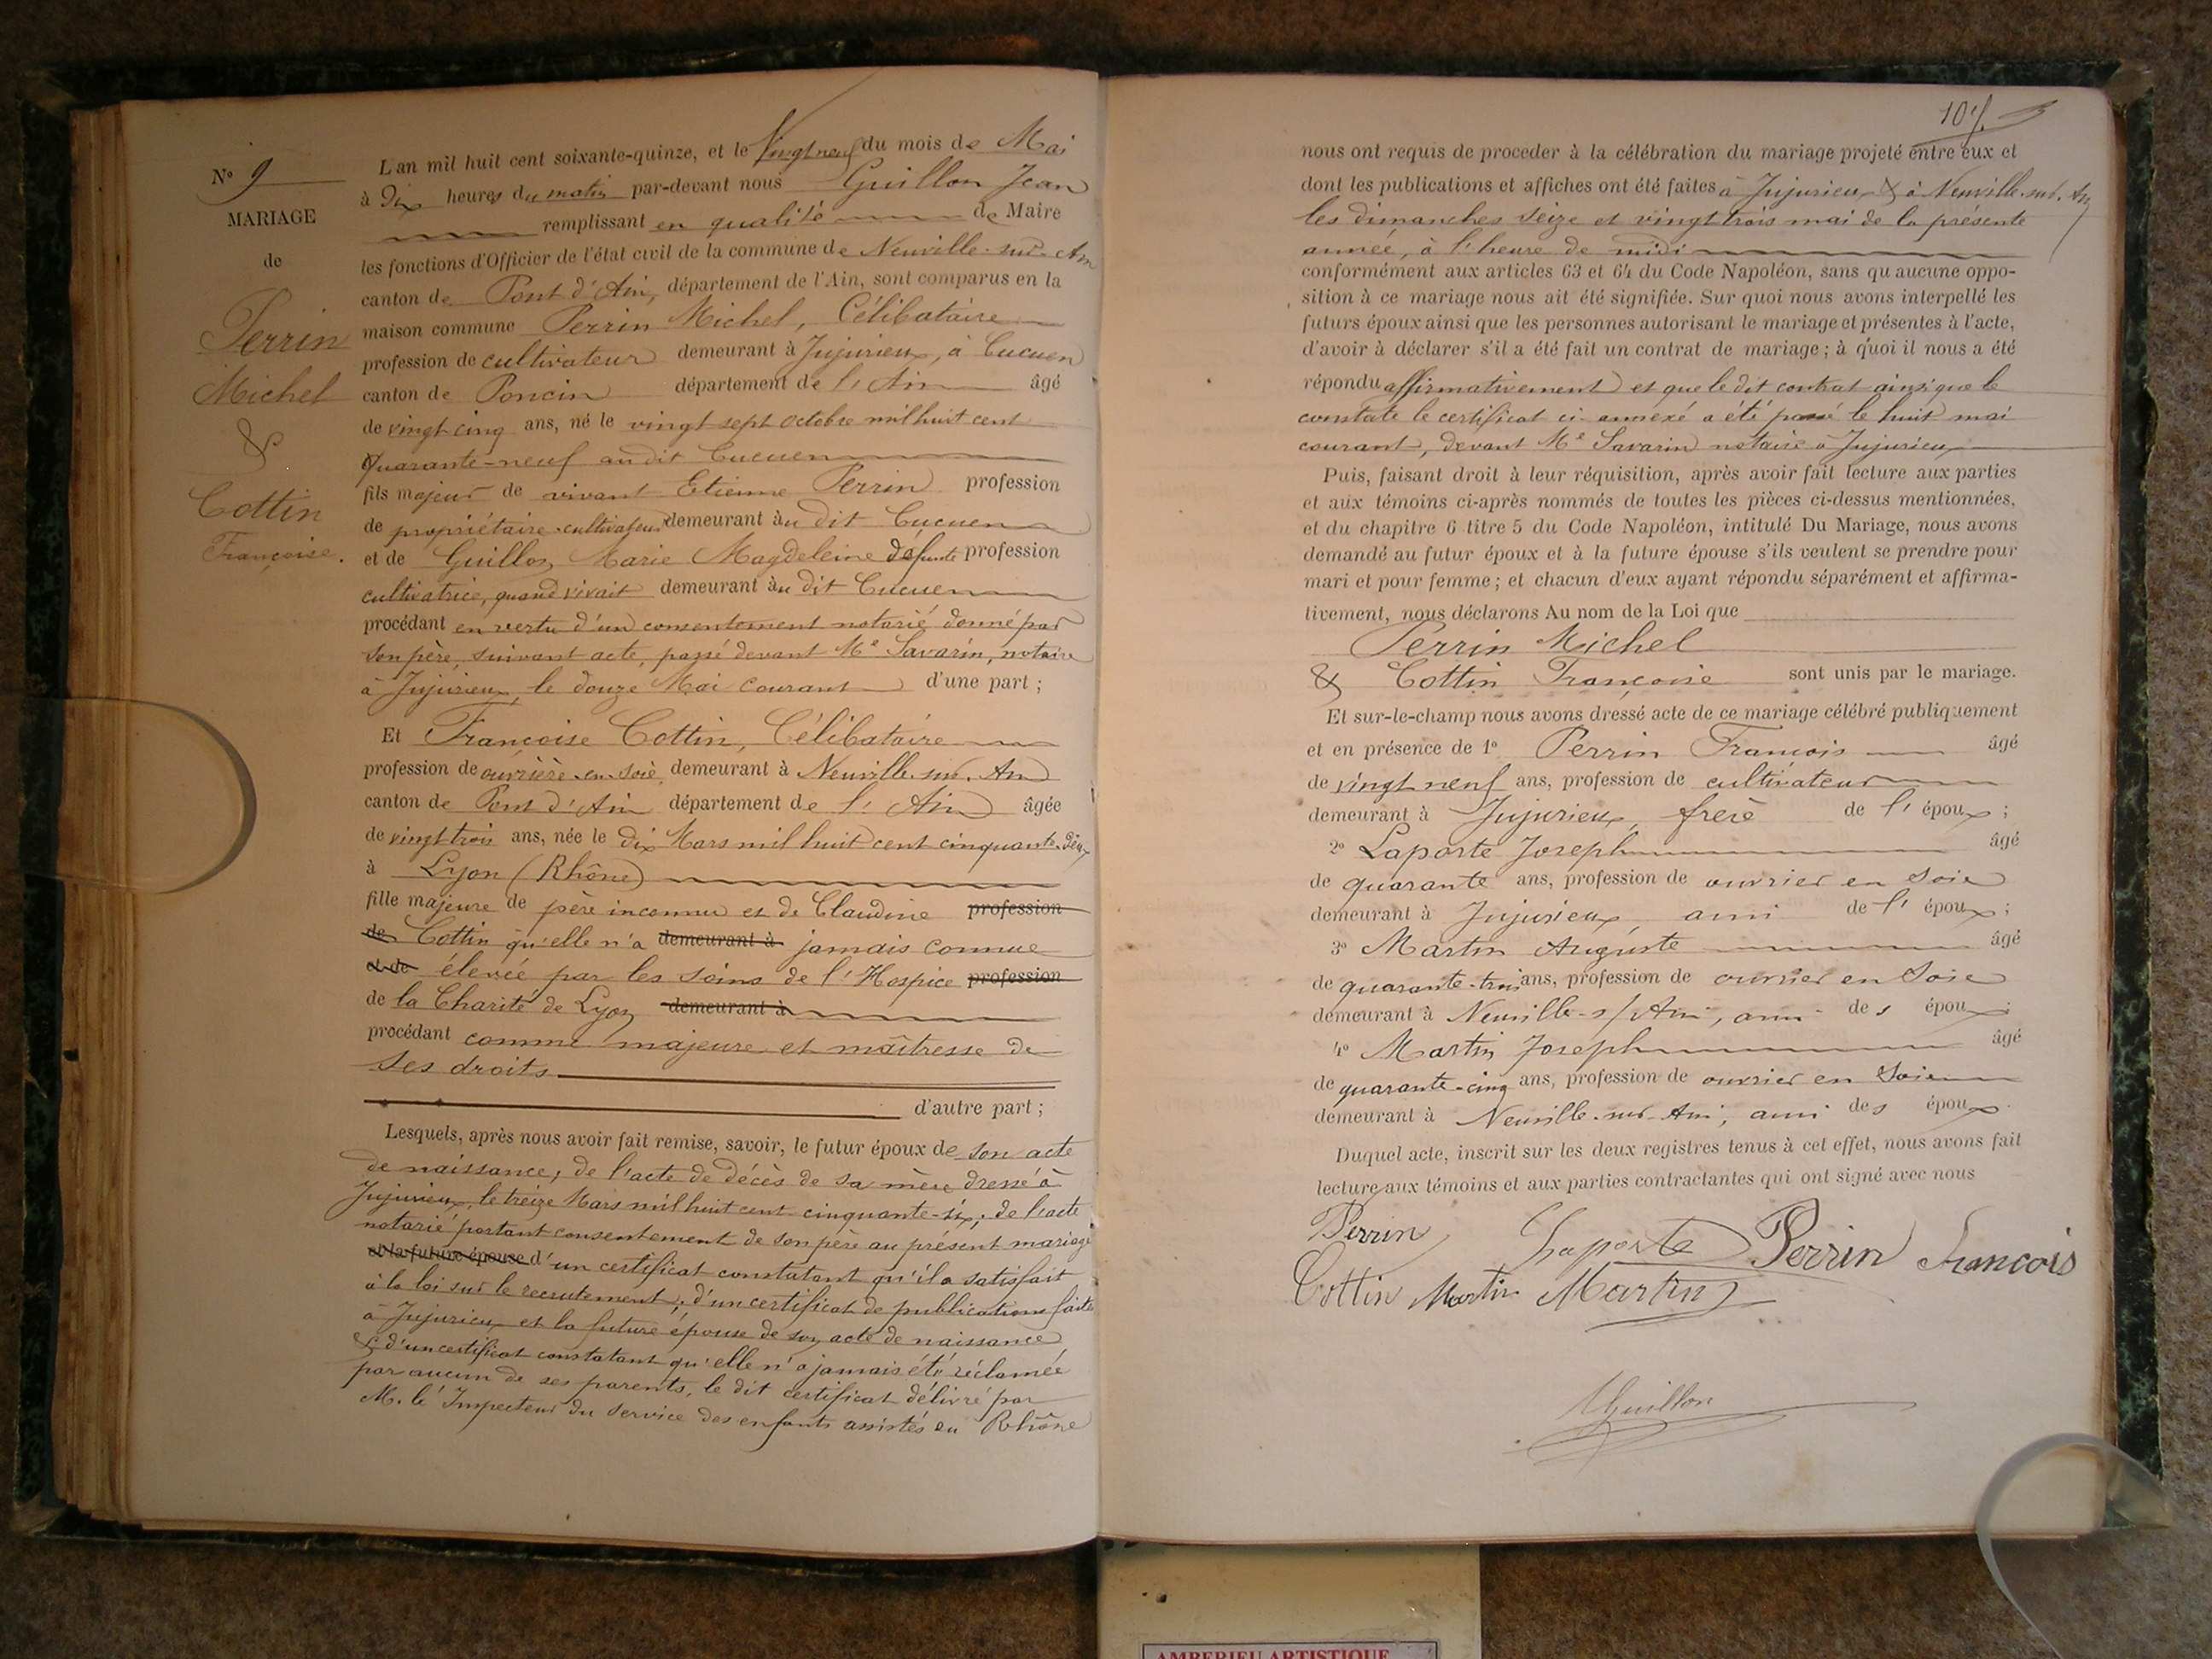 N° 9
MARIAGE
de
Perrin
Michel
&
Cottin
Françoise.
L'an mil huit cent soixante-quinze, et le Vingt neuf du mois de Mai
à Dix heures du matin par-devant nous Guillon Jean
remplissant en qualité de Maire
les fonctions d'Officier de l'état civil de la commune de Neuville-sur-Ain
canton de Pont d'Ain, département de l'Ain, sont comparus en la
maison commune Perrin Michel, Célibataire
profession de cultivateur demeurant à Jujurieux, à Cucuen
canton de Poncin département de l'Ain âgé
de vingt cinq ans, né le vingt sept octobre mil huit cent
quarante-neuf au dit Cucuen
fils majeur de vivant Etienne Perrin profession
de propriétaire-cultivateur demeurant au dit Cucuen
et de Guillon Marie Magdeleine défunte profession
cultivatrice, quand vivait demeurant au dit Cucuen
procédant en vertu d'un consentement notarié donné par
son père, suivant acte, passé devant Me Savarin, notaire
à Jujurieux, le douze Mai courant d'une part ;
Et Françoise Cottin, Célibataire
profession de ouvrière-en-soie demeurant à Neuville-sur-Ain
canton de Pont d'Ain département de l'Ain âgée
de vingt trois ans, née le dix Mars mil huit cent cinquante-deux
à Lyon (Rhône)
fille majeure de père inconnu et de Claudine profession
de Cottin qu'elle n'a demeurant à jamais connue
et de élevée par les soins de l'Hospice profession
de la Charité de Lyon demeurant à
procédant comme majeure et maîtresse de
ses droits
d'autre part ;
Lesquels, après nous avoir fait remise, savoir, le futur époux de son acte
de naissance, de l'acte de décès de sa mère dressé à
Jujurieux, le treize Mars mil huit cent cinquante-six ; de l'acte
notarié portant consentement de son père au présent mariage
et la future épouse d'un certificat constatant qu'il a satisfait
à la loi sur le recrutement ; d'un certificat de publications faites
à Jujurieux et la future épouse de son acte de naissance
& d'un certificat constatant qu'elle n'a jamais été réclamée
par aucun de ses parents, le dit certificat délivré par
M. le Inspecteur du service des enfants assistés du Rhône
107
nous ont requis de proceder à la célébration du mariage projeté entre eux et
dont les publications et affiches ont été faites à Jujurieux & à Neuville-sur-Ain
les dimanches seize et vingt trois mai de la présente
année, à l'heure de midi
conformément aux articles 63 et 64 du Code Napoléon, sans qu'aucune oppo-
sition à ce mariage nous ait été signifiée. Sur quoi nous avons interpellé les
futurs époux ainsi que les personnes autorisant le mariage et présentes à l'acte,
d'avoir à déclarer s'il a été fait un contrat de mariage ; à quoi il nous a été
répondu affirmativement et que le dit contrat ainsi que le
constate le certificat ci-annexé a été passé le huit mai
courant, devant Me Savarin notaire à Jujurieux
Puis, faisant droit à leur réquisition, après avoir fait lecture aux parties
et aux témoins ci-après nommés de toutes les pièces ci-dessus mentionnées,
et du chapitre 6 titre 5 du Code Napoléon, intitulé Du Mariage, nous avons
demandé au futur époux et à la future épouse s'ils veulent se prendre pour
mari et pour femme ; et chacun d'eux ayant répondu séparément et affirma-
tivement, nous déclarons Au nom de la Loi que
Perrin Michel
& Cottin Françoise sont unis par le mariage.
Et sur-le-champ nous avons dressé acte de ce mariage célébré publiquement
et en présence de 1° Perrin François âgé
de vingt neuf ans, profession de cultivateur
demeurant à Jujurieux, frère de l'époux ;
2° Laporte Joseph âgé
de quarante ans, profession de ouvrier en soie
demeurant à Jujurieux ami de l'époux ;
3° Martin Auguste âgé
de quarante-trois ans, profession de ouvrier en soie
demeurant à Neuville-s/Ain, ami des époux ;
4° Martin Joseph âgé
de quarante-cinq ans, profession de ouvrier en soie
demeurant à Neuville-sur-Ain, ami des époux.
Duquel acte, inscrit sur les deux registres tenus à cet effet, nous avons fait
lecture aux témoins et aux parties contractantes qui ont signé avec nous
Perrin Laporte Perrin Francois
Cottin Martin Martin
Guillon
AMBERIEU ARTISTIQUE